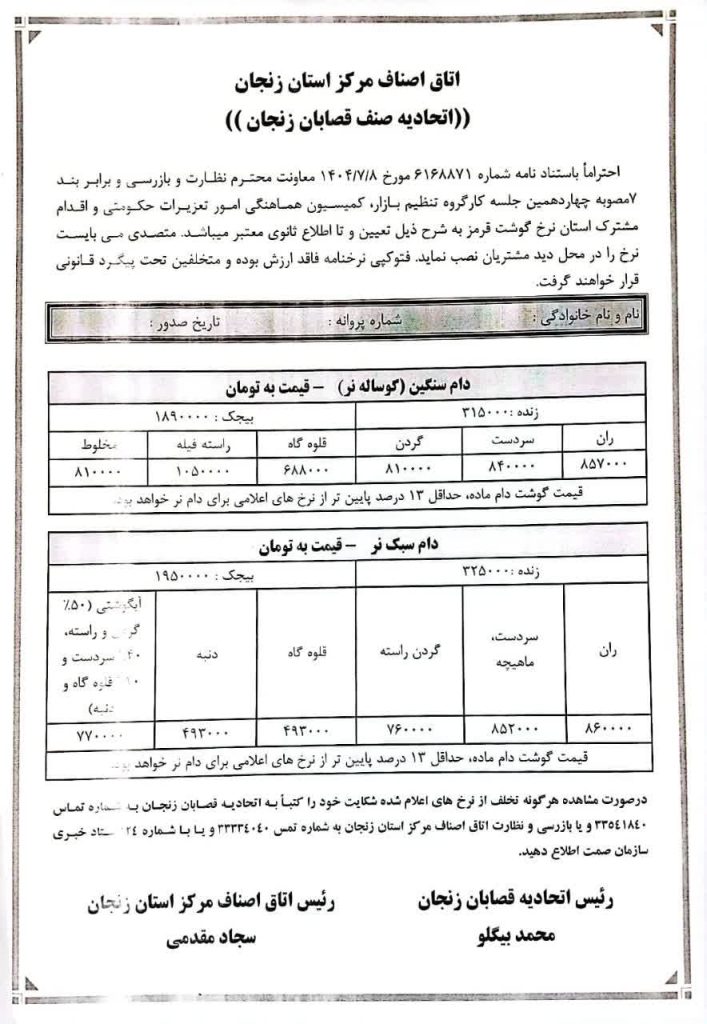 اتاق اصناف مرکز استان زنجان
((اتحادیه صنف قصابان زنجان ))
احتراماً باستناد نامه شماره ۶۱۶۸۸۷۱ مورخ ۱۴۰۴/۷/۸ معاونت محترم نظارت و بازرسی و برابر بند
۷مصوبه چهاردهمین جلسه کارگروه تنظیم بازار، کمیسیون هماهنگی امور تعزیرات حکومتی و اقدام
مشترک استان نرخ گوشت قرمز به شرح ذیل تعیین و تا اطلاع ثانوی معتبر میباشد. متصدی می بایست
نرخ را در محل دید مشتریان نصب نماید. فتوکپی نرخنامه فاقد ارزش بوده و متخلفین تحت پیگرد قانونی
قرار خواهند گرفت.
نام و نام خانوادگی : شماره پروانه : تاریخ صدور :
دام سنگین (گوساله نر) - قیمت به تومان
زنده :۳۱۵۰۰۰ بیجک : ۱۸۹۰۰۰۰
ران سردست گردن قلوه گاه راسته فیله مخلوط
۸۵۷۰۰۰ ۸۴۰۰۰۰ ۸۱۰۰۰۰ ۶۸۸۰۰۰ ۱۰۵۰۰۰۰ ۸۱۰۰۰۰
قیمت گوشت دام ماده، حداقل ۱۳ درصد پایین تر از نرخ های اعلامی برای دام نر خواهد بود.
دام سبک نر - قیمت به تومان
زنده :۳۲۵۰۰۰ بیجک : ۱۹۵۰۰۰۰
ران سردست، ماهیچه گردن راسته قلوه گاه دنبه آبگوشتی (۵۰٪
و راسته،
سردست و
قلوه گاه و
دنبه)
۸۶۰۰۰۰ ۸۵۲۰۰۰ ۷۶۰۰۰۰ ۴۹۳۰۰۰ ۴۹۳۰۰۰ ۷۷۰۰۰۰
قیمت گوشت دام ماده، حداقل ۱۳ درصد پایین تر از نرخ های اعلامی برای دام نر خواهد بود.
درصورت مشاهده هرگونه تخلف از نرخ های اعلام شده شکایت خود را کتباً به اتحادیه قصابان زنجان به شماره تماس
۳۳۵۴۱۸۴۰ و یا بازرسی و نظارت اتاق اصناف مرکز استان زنجان به شماره تمس ۳۳۳۳۴۰۴۰ و یا با شماره ستاد خبری
سازمان صمت اطلاع دهید.
رئیس اتحادیه قصابان زنجان رئیس اتاق اصناف مرکز استان زنجان
محمد بیگلو سجاد مقدمی